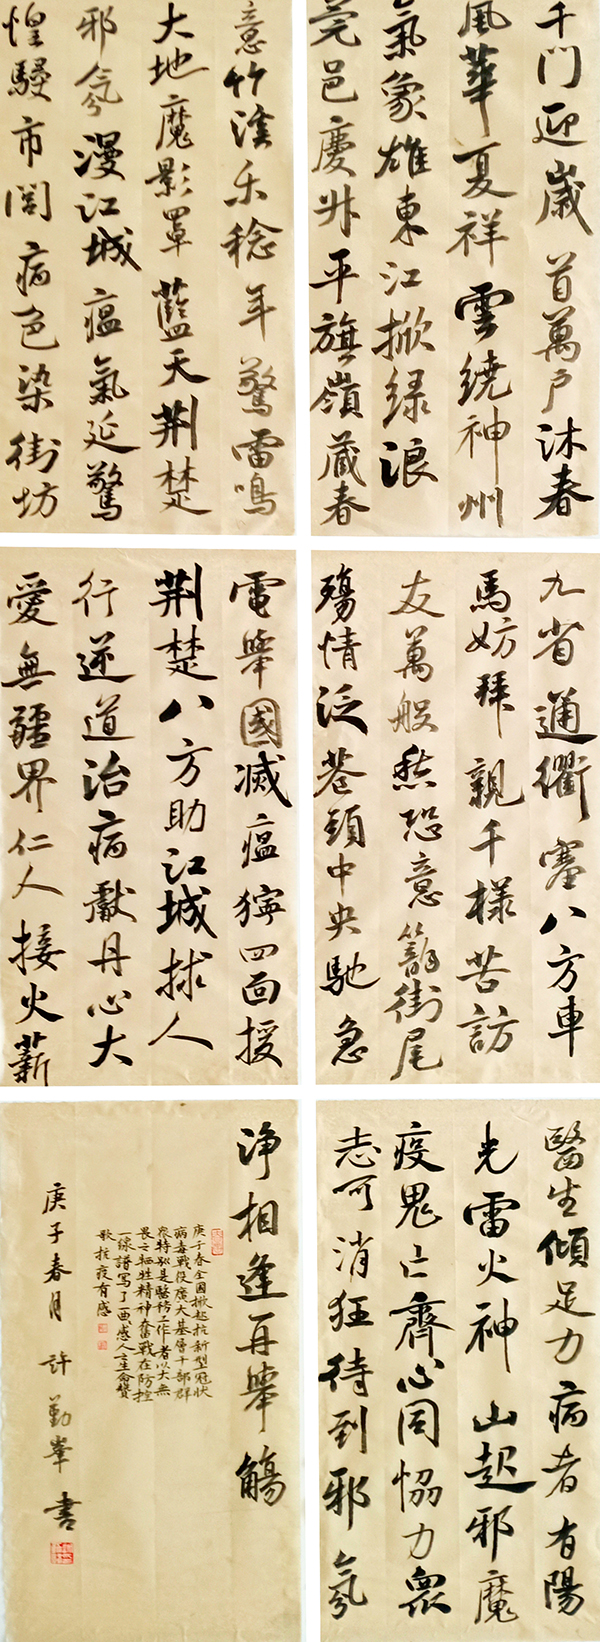 千門迎歲首萬戶沐春
風華夏祥雲繞神州
氣象雄東江掀綠浪
莞邑慶昇平旗嶺藏春
意竹溪禾稔年驚雷鳴
大地魔影罩藍天荊楚
邪氛漫江城瘟氣延驚
惶騷市閭病色染街坊
九省通衢塞八方車
馬妨拜親千樣苦訪
友萬般愁恐意籠街尾
殤情泛巷頭中央馳急
電舉國滅瘟獰四面援
荊楚八方助江城捄人
行逆道治病獻丹心大
愛無疆界仁人接火薪
醫生傾足力病者有陽
光雷火神山起邪魔
疫鬼亡齊心同協力眾
志可消狂待到邪氛
淨相逢再舉觴
庚子春全國掀起抗新型冠狀
病毒戰役廣大基層干部群
眾特別是醫務工作者以大無
畏之牺牲精神奮戰在防控
一線譜寫了一曲感人生命贊
歌抗疫有感
庚子春月許勤峯書